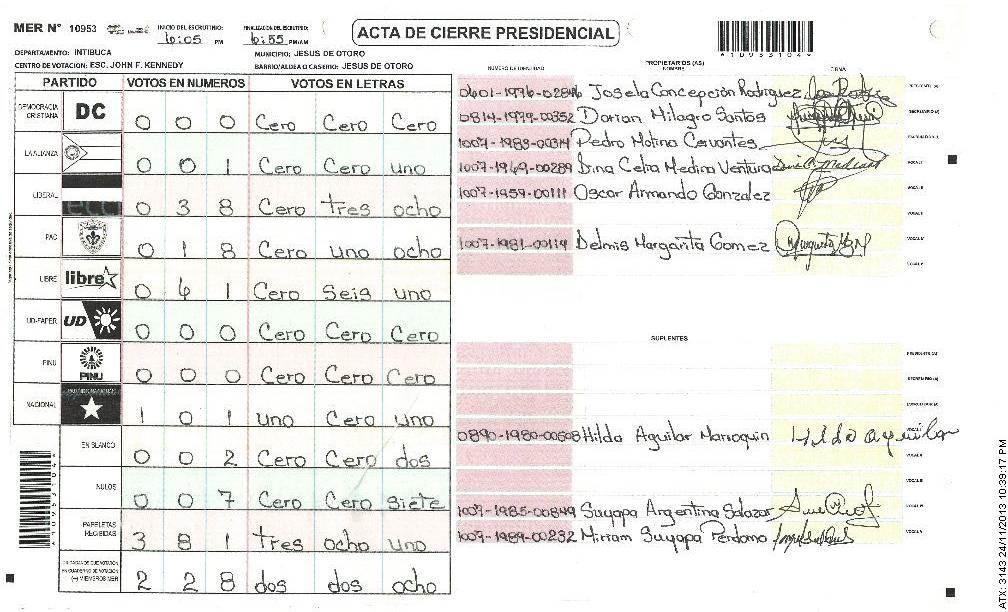 MER N° 10953 INICIO DEL ESCRUTINIO: 6:05 PM FINALIZACION DEL ESCRUTINIO: 6:55 PM/AM ACTA DE CIERRE PRESIDENCIAL *10953104*
DEPARTAMENTO: INTIBUCA MUNICIPIO: JESUS DE OTORO
CENTRO DE VOTACION: ESC. JOHN F. KENNEDY BARRIO/ALDEA O CASERIO: JESUS DE OTORO
PARTIDO VOTOS EN NUMEROS VOTOS EN LETRAS
DEMOCRACIA CRISTIANA DC 0 0 0 Cero Cero Cero
LA ALIANZA 0 0 1 Cero Cero uno
LIBERAL 0 3 8 Cero tres ocho
PAC 0 1 8 Cero uno ocho
LIBRE libre 0 6 1 Cero Seis uno
UD-FAPER UD 0 0 0 Cero Cero Cero
PINU PINU 0 0 0 Cero Cero Cero
NACIONAL 1 0 1 uno Cero uno
EN BLANCO 0 0 2 Cero Cero dos
NULOS 0 0 7 Cero Cero Siete
PAPELETAS RECIBIDAS 3 8 1 tres ocho uno
CIUDADANOS QUE VOTARON EN CUADERNO DE VOTACION (+) MIEMBROS MER 2 2 8 dos dos ocho
NUMERO DE IDENTIDAD PROPIETARIOS (AS) NOMBRE FIRMA
Josela Concepción Rodriguez PRESIDENTE (A)
0814-1979-00352 Dorian Milagro Santos SECRETARIO (A)
1007-1983-00314 Pedro Molina Cervantes ESCRUTADOR (A)
1007-1969-00289 Dina Celia Medina Ventura VOCAL I
1007-1959-00111 Oscar Armando Gonzalez VOCAL II
VOCAL III
1007-1981-00114 Delmis Margarita Gomez VOCAL IV
VOCAL V
SUPLENTES
PRESIDENTE (A)
SECRETARIO (A)
ESCRUTADOR (A)
0890-1980-00608 Hilda Aguilar Marroquin Hilda Aguilar VOCAL I
VOCAL II
VOCAL III
1007-1985-00849 Suyapa Argentina Salazar VOCAL IV
1007-1989-00232 Miriam Suyapa Perdomo VOCAL V
*10953104*
ATX: 3143 24/11/2013 10:39:17 PM